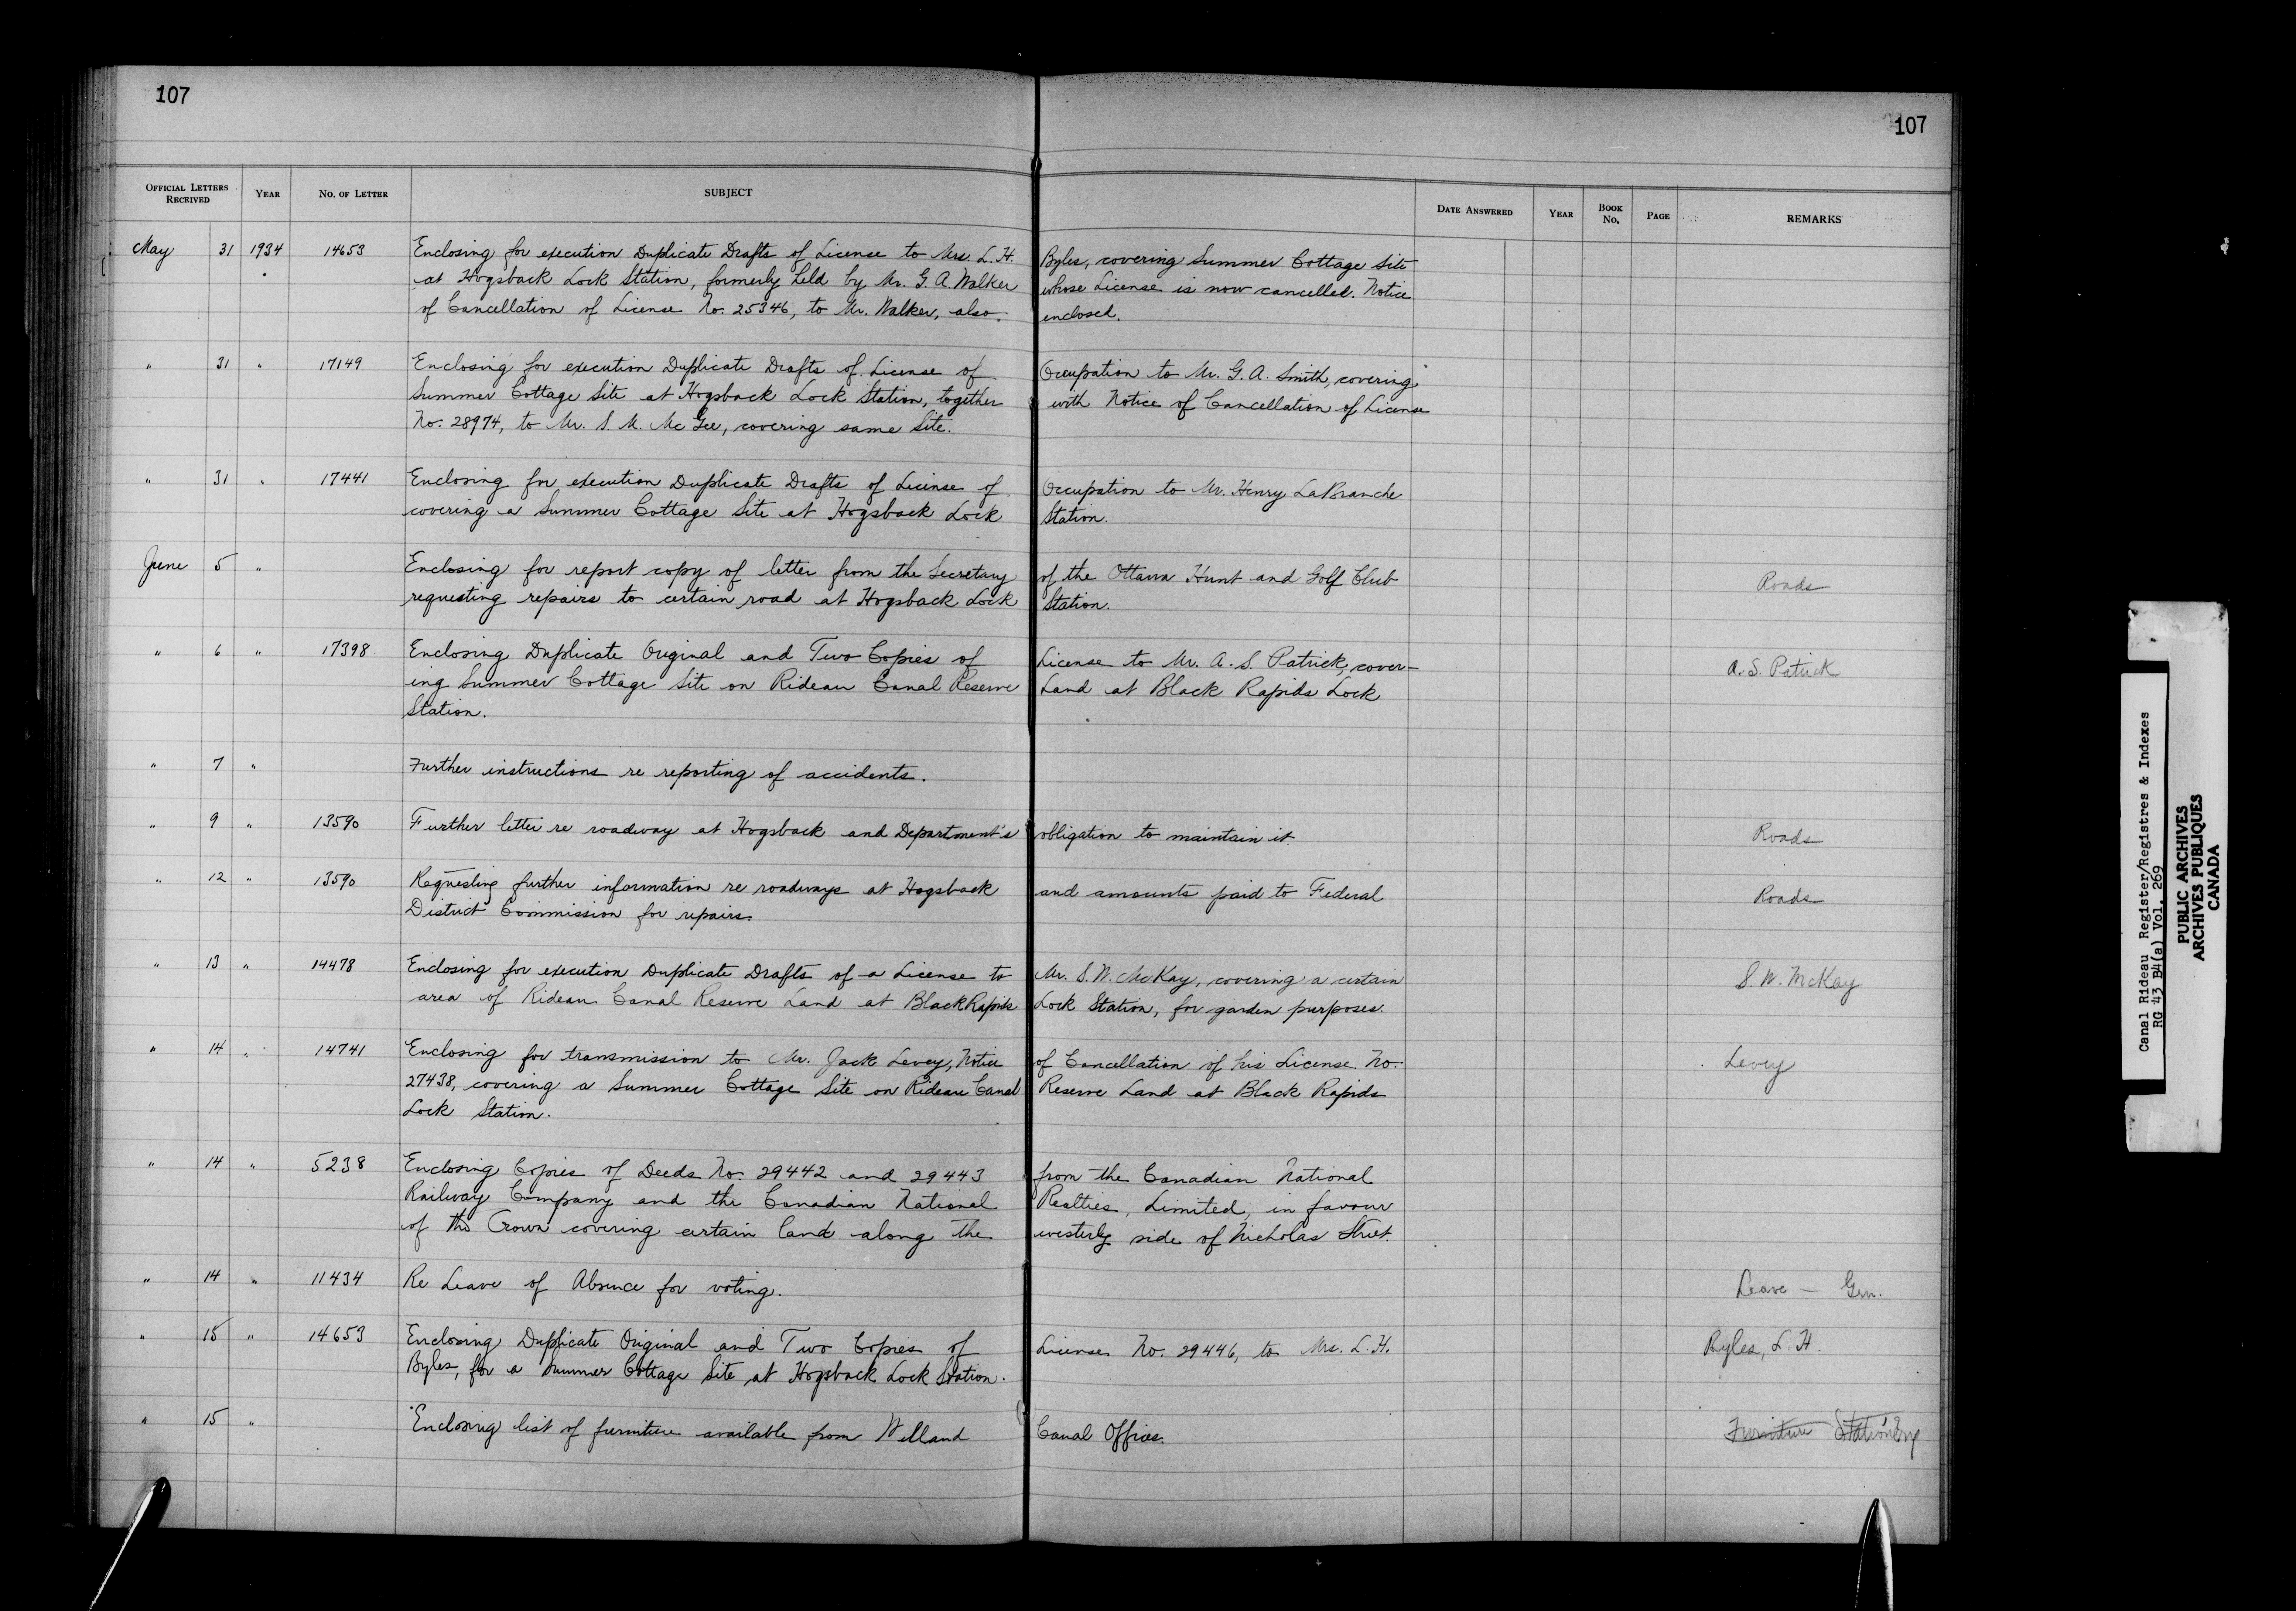 107
107
OFFICIAL LETTERS RECEIVED YEAR NO. OF LETTER SUBJECT DATE ANSWERED YEAR BOOK NO. PAGE REMARKS
May 31 1934 14653 Enclosing for execution Duplicate Drafts of License to Mrs. L. H. Byles, covering Summer Cottage Site
at Hogsback Lock Station, formerly held by Mr. G. A. Walker whose License is now cancelled. Notice
of Cancellation of License No. 25346, to Mr. Walker, also enclosed.
" 31 " 17149 Enclosing for execution Duplicate Drafts of License of Occupation to Mr. G. A. Smith, covering
Summer Cottage Site at Hogsback Lock Station, together with Notice of Cancellation of License
No. 28974, to Mr. S. M. McGee, covering same Site.
" 31 " 17441 Enclosing for execution Duplicate Drafts of License of Occupation to Mr. Henry LaBranche
covering a Summer Cottage Site at Hogsback Lock Station.
June 5 " Enclosing for report copy of letter from the Secretary of the Ottawa Hunt and Golf Club
requesting repairs to certain road at Hogsback Lock Station. Roads
" 6 " 17398 Enclosing Duplicate Original and Two Copies of License to Mr. A. S. Patrick, cover-
ing Summer Cottage Site on Rideau Canal Reserve Land at Black Rapids Lock A. S. Patrick
Station.
" 7 " Further instructions re reporting of accidents.
" 9 " 13590 Further letter re roadway at Hogsback and Department's obligation to maintain it. Roads
" 12 " 13590 Requesting further information re roadways at Hogsback and amounts paid to Federal Roads
District Commission for repairs.
" 13 " 14478 Enclosing for execution Duplicate Drafts of a License to Mr. S. W. McKay, covering a certain S. W. McKay
area of Rideau Canal Reserve Land at Black Rapids Lock Station, for garden purposes.
" 14 " 14741 Enclosing for transmission to Mr. Jack Levey, Notice of Cancellation of his License No. Levey
27438, covering a Summer Cottage Site on Rideau Canal Reserve Land at Black Rapids
Lock Station.
" 14 " 5238 Enclosing Copies of Deeds No. 29442 and 29443 from the Canadian National
Railway Company and the Canadian National Realties, Limited, in favour
of the Crown covering certain land along the westerly side of Nicholas Street.
" 14 " 11434 Re Leave of Absence for voting. Leave - Gen.
" 15 " 14653 Enclosing Duplicate Original and Two Copies of License No. 29446, to Mrs. L. H. Byles, L. H.
Byles, for a Summer Cottage Site at Hogsback Lock Station.
" 15 " Enclosing list of furniture available from Welland Canal Office. Furniture Station'ry
Canal Rideau Register/Registres & Indexes
RG 43 B4(a) Vol. 269
PUBLIC ARCHIVES
ARCHIVES PUBLIQUES
CANADA